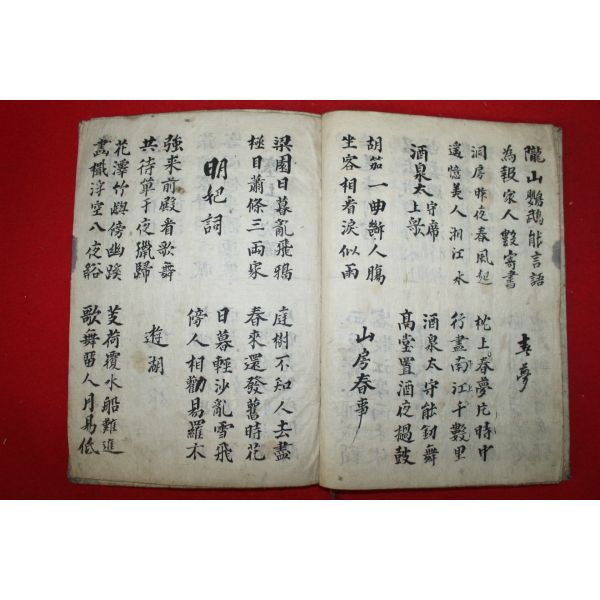 隴山鸚鵡能言語
為報家人數寄書
春夢
洞房昨夜春風起
枕上春夢片時中
遙憶美人湘江水
行盡南江千數里
酒泉太守席上歌
酒泉太守能劍舞
高堂置酒夜撾鼓
胡笳一曲斷人膓
坐客相看淚似雨
山房春事
梁園日暮亂飛鴉
極目蕭條三兩家
庭樹不知人去盡
春來還發舊時花
明妃詞
日暮輕沙亂雪飛
傍人相勸易羅衣
強来前殿看歌舞
共待單于夜獵歸
遊湖
花澤竹嶼傍幽蹊
畫檝浮空入夜谿
芰荷覆水船難進
歌舞留人月易低